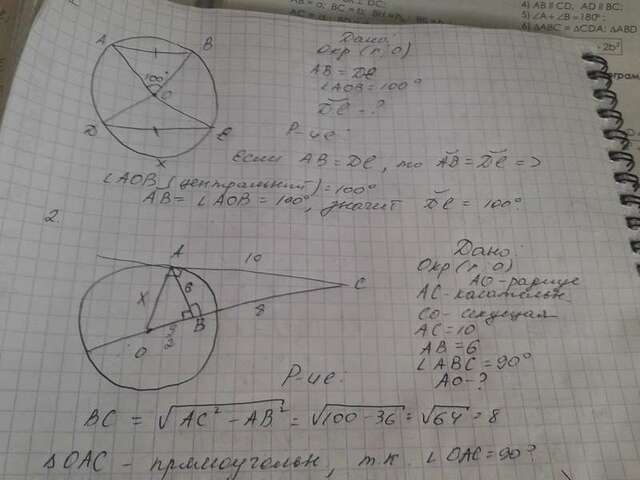 4) AB ∥ CD, AD ∥ BC;
5) ∠A + ∠B = 180°;
6) ΔABC = ΔCDA; ΔABD
- 2b²
Дано:
Окр (r; O)
AB = DC
∠AOB = 100°
DC - ?
Р-ие:
Если AB = DC, то AB = DC =>
∠AOB (центральный) = 100°
AB = ∠AOB = 100°, значит DC = 100°
A
B
100°
O
D
C
X
2.
A
10
C
X
6
B
8
O
Дано:
Окр (r; O)
AO - радиус
AC - касательн
CO - секущая
AC = 10
AB = 6
∠ABC = 90°
AO - ?
Р-ие:
BC = √AC² - AB² = √100 - 36 = √64 = 8
ΔOAC - прямоугольн, т.к. ∠OAC = 90?